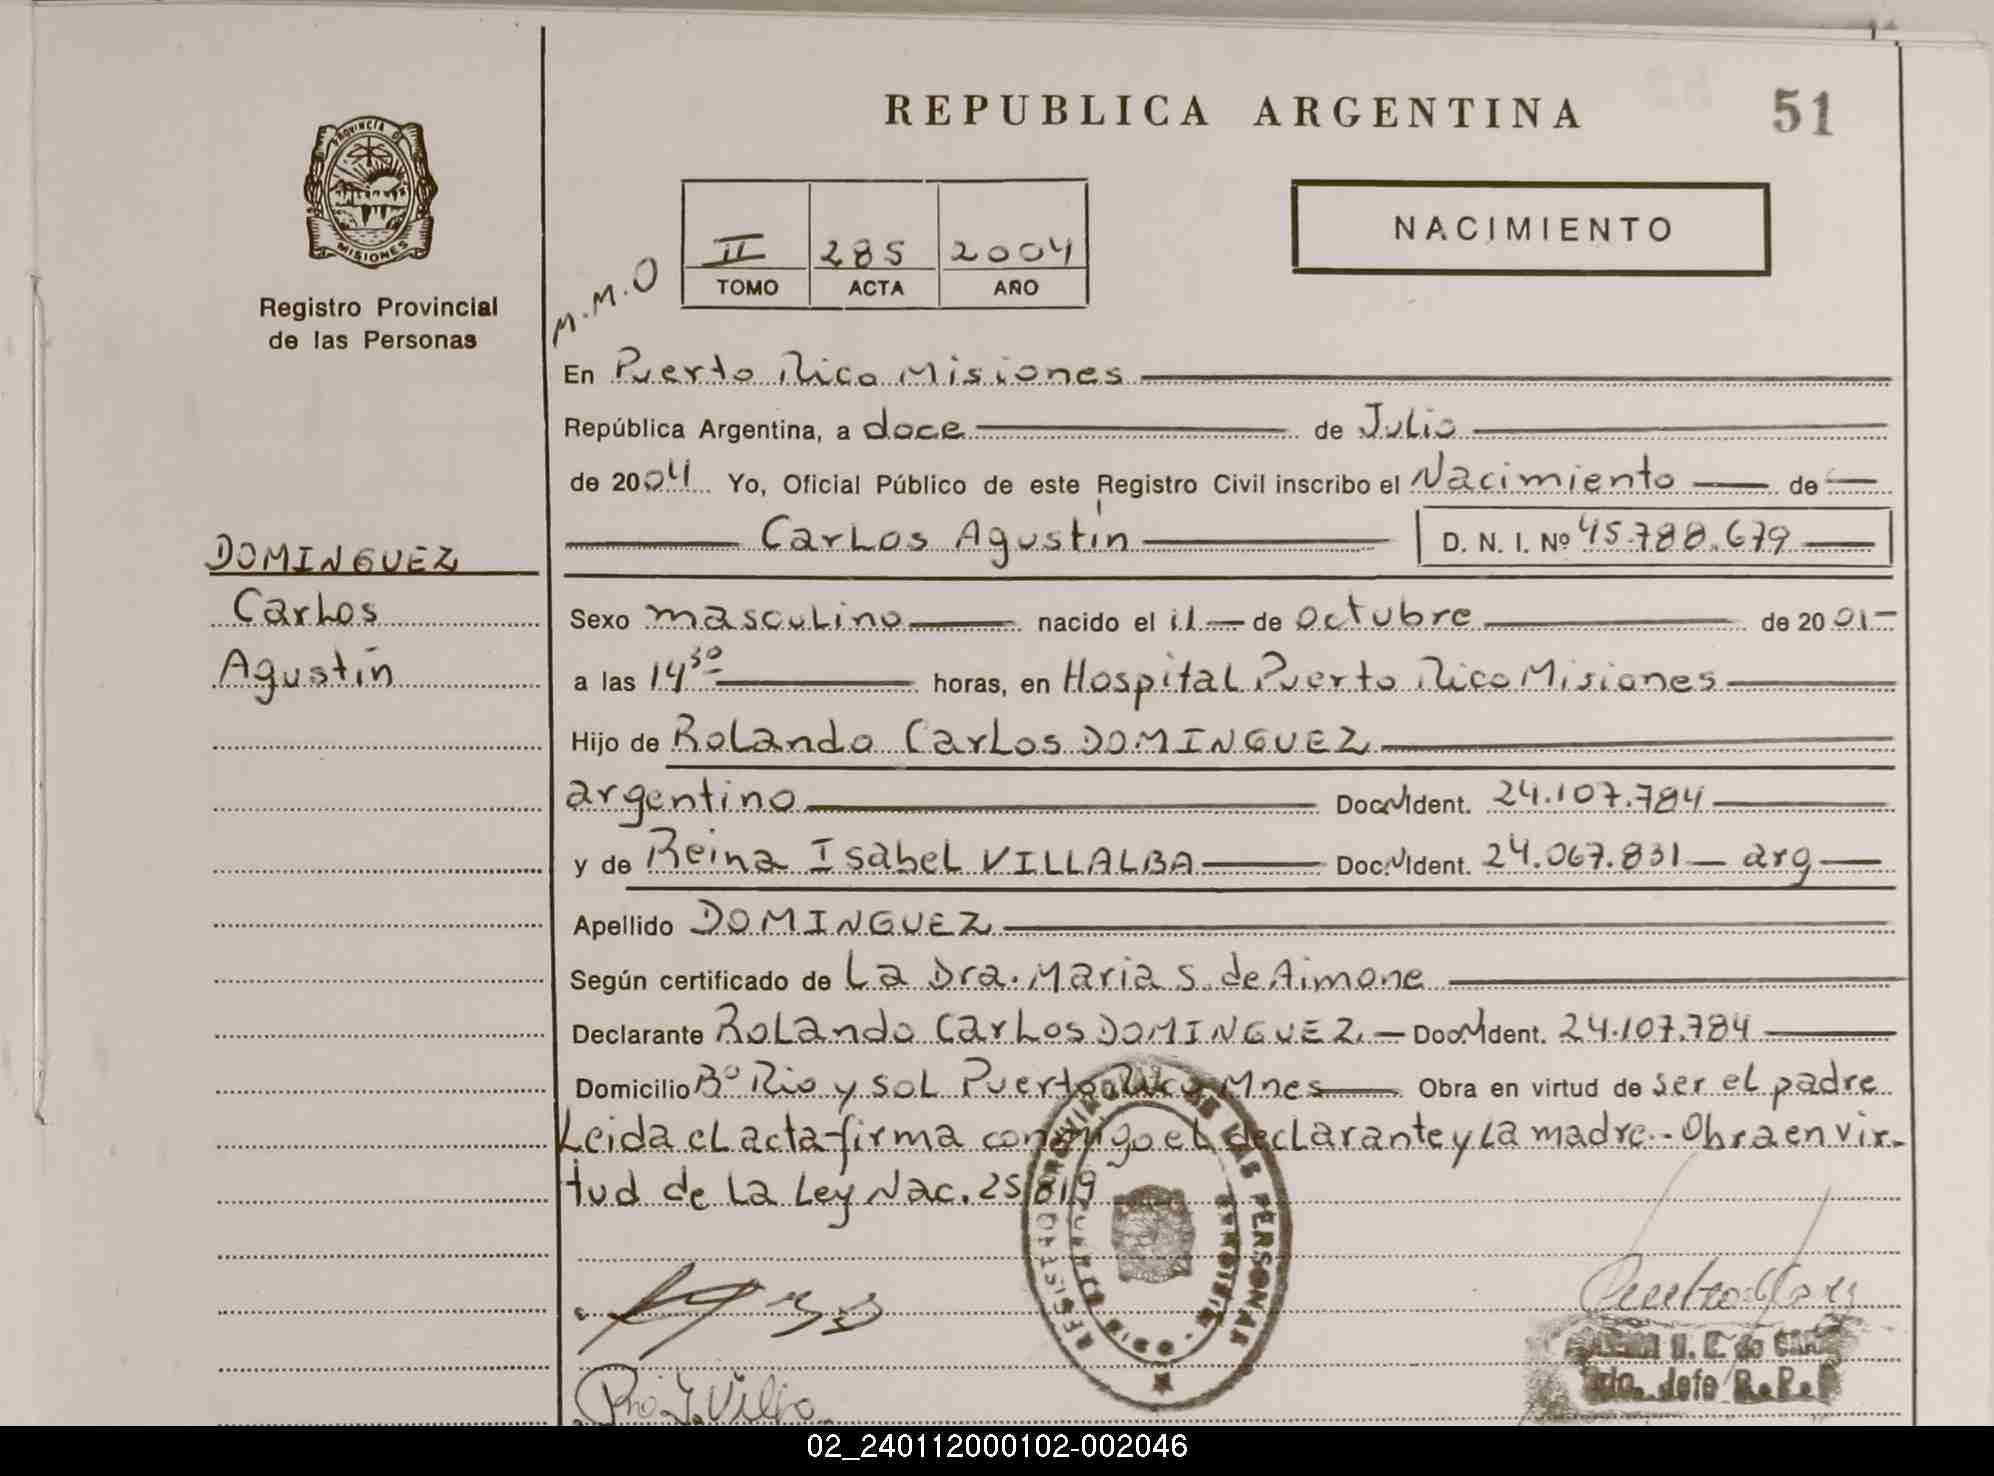 REPUBLICA ARGENTINA
51
PROVINCIA DE
MISIONES
Registro Provincial
de las Personas
NACIMIENTO
II 285 2004
TOMO ACTA AÑO
M.M.O
En Puerto Rico Misiones
República Argentina, a doce de Julio
de 2004 Yo, Oficial Público de este Registro Civil inscribo el Nacimiento de
Carlos Agustín D. N. I. Nº 45.788.679
DOMINGUEZ
Carlos
Agustín
Sexo masculino nacido el 11 de Octubre de 2001
a las 14 30 horas, en Hospital Puerto Rico Misiones
Hijo de Rolando Carlos DOMINGUEZ
argentino Doc. Ident. 24.107.784
y de Reina Isabel VILLALBA Doc. Ident. 24.067.831 arg
Apellido DOMINGUEZ
Según certificado de La Dra. Maria S. de Aimone
Declarante Rolando Carlos DOMINGUEZ. Doc. Ident. 24.107.784
Domicilio Bº Rio y sol Puerto Rico Mnes Obra en virtud de ser el padre
Leida el acta firma conmigo el declarante y la madre.- Obra en vir-
tud de La Ley Nac. 25.819
REGISTRO PROVINCIAL DE LAS PERSONAS
jefe R.P.P
02_240112000102-002046